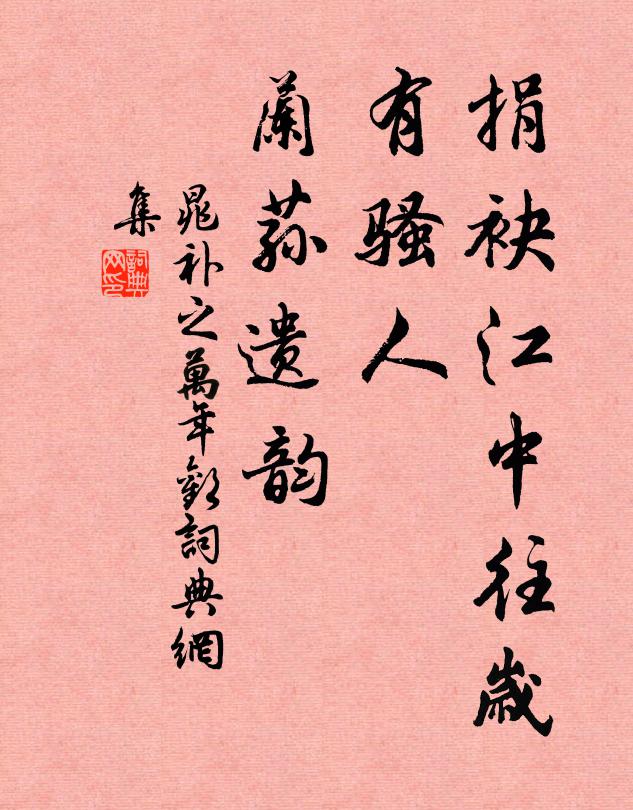 捐袂江中往歲
有騷人
蘭荪遗韵
晁补之萬年歡詞典網
集
詞典网印